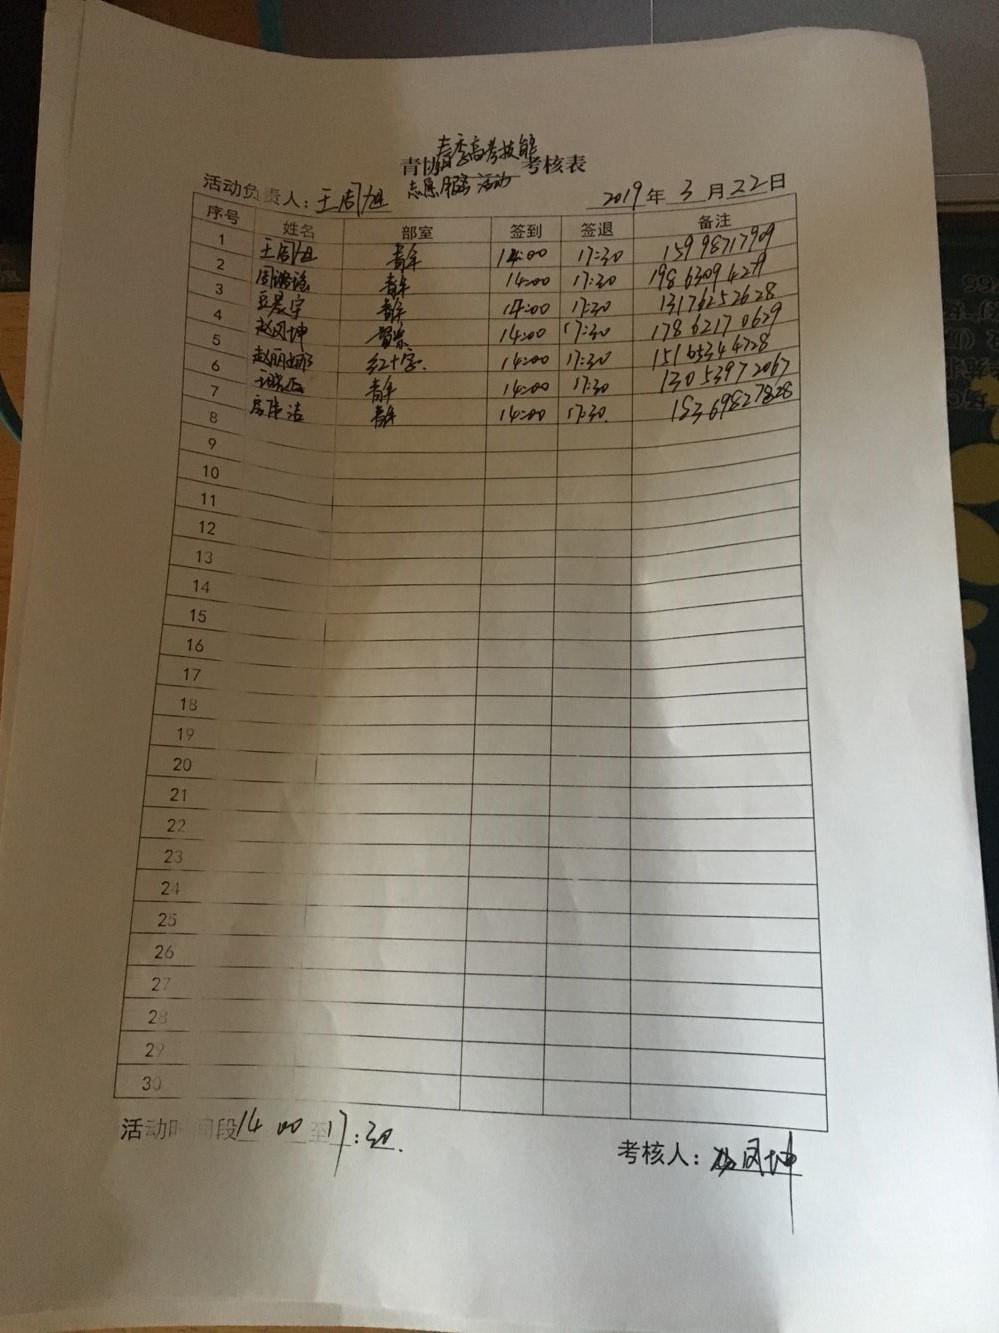 春季高考技能
青协 考核表
志愿服务活动
活动负责人：王周旭 2019年3月22日
序号 姓名 部室 签到 签退 备注
1 王周旭 青年 14:00 17:30 15998717909
2 青年 14:00 17:30 19863094279
3 豆晨宇 青年 14:00 17:30 13176252628
4 赵凤坤 14:00 17:30 17862170629
5 赵丽娜 红十字. 14:00 17:30 15165344728
6 青年 14:00 17:30 13053972067
7 青年 14:00 17:30. 15369827828
8
9
10
11
12
13
14
15
16
17
18
19
20
21
22
23
24
25
26
27
28
29
30
活动时间段14 00至17:30.
考核人：赵凤坤